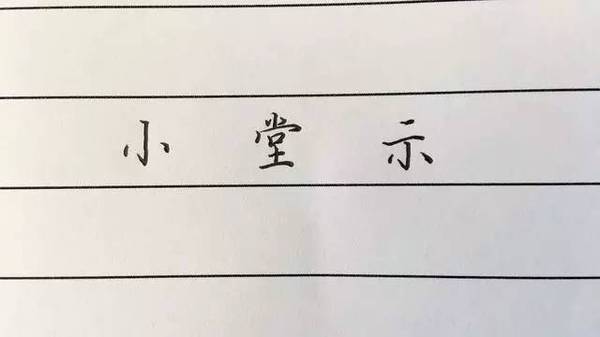 小 堂 示